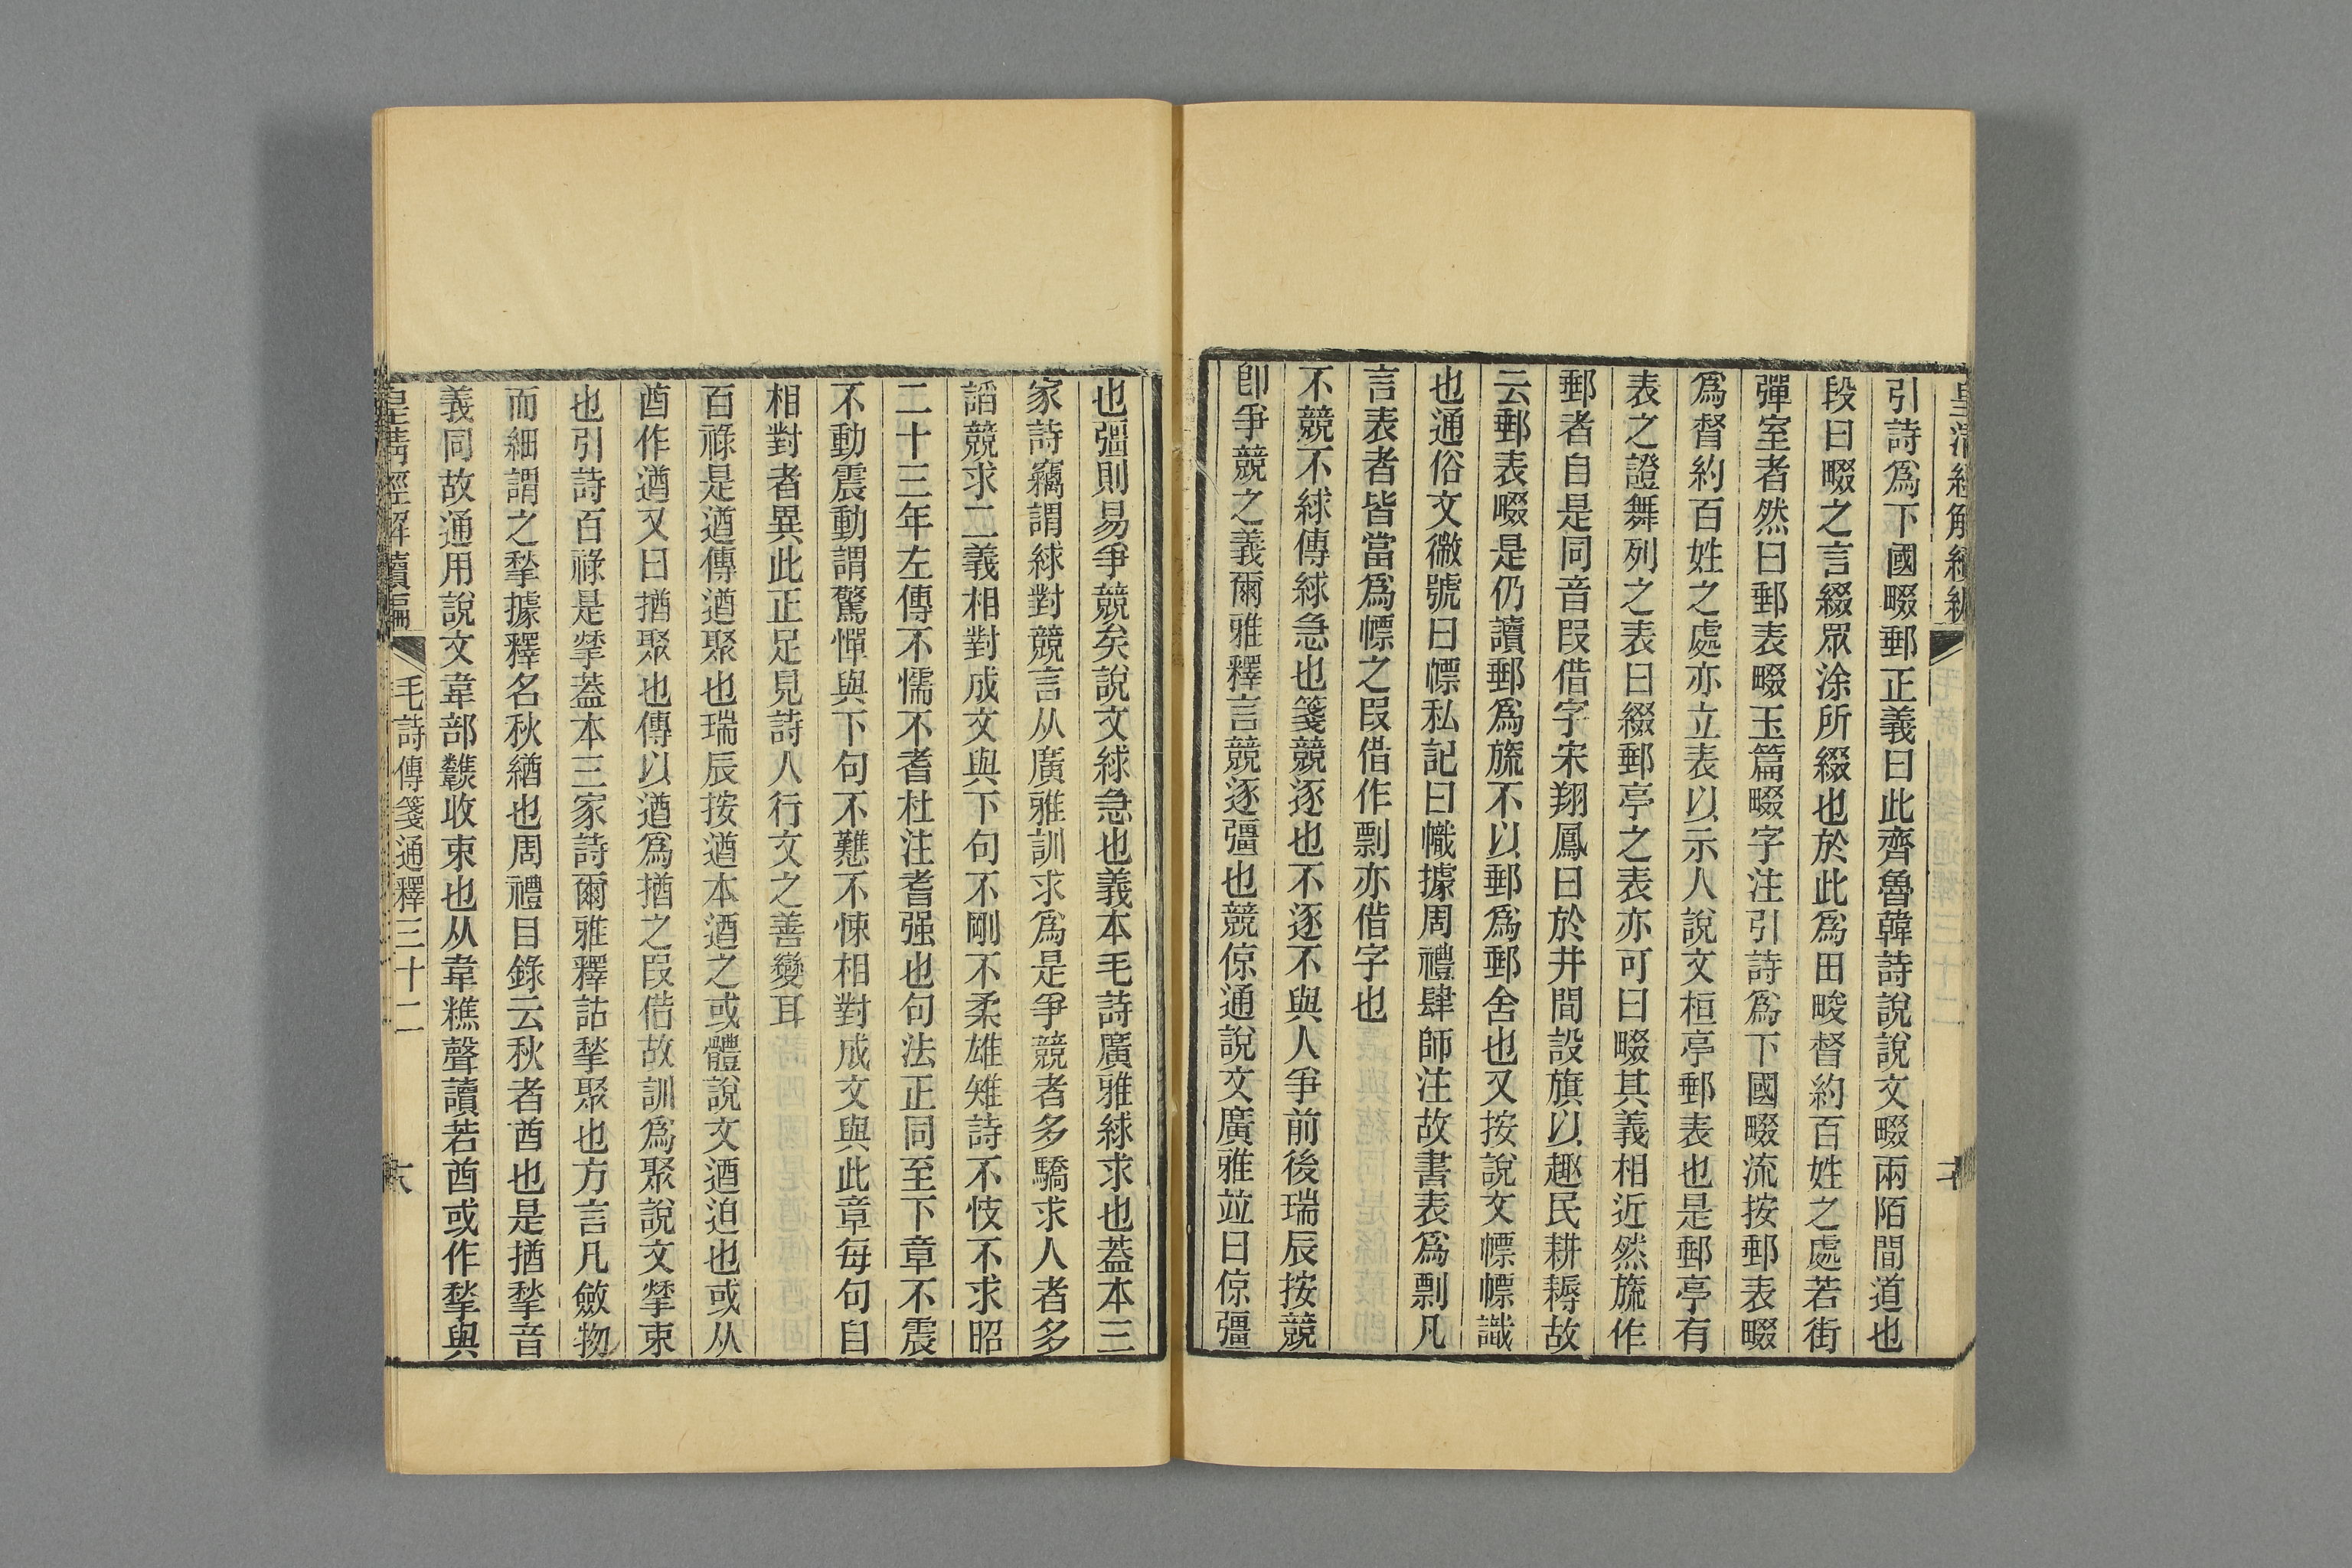 引詩爲下國畷郵正義曰此齊魯韓詩說說文畷兩陌閒道也
段曰畷之言綴眾涂所綴也於此爲田畯督約百姓之處若街
彈室者然曰郵表畷玉篇畷字注引詩爲下國畷流按郵表畷
爲督約百姓之處亦立表以示人說文桓亭郵表也是郵亭有
表之證舞列之表曰綴郵亭之表亦可曰畷其義相近然旒作
郵者自是同音叚借字宋翔鳳曰於井閒設旗以趣民耕耨故
云郵表畷是仍讀郵爲旒不以郵爲郵舍也又按說文幖幖識
也通俗文微號曰幖私記曰幟據周禮肆師注故書表爲剽凡
言表者皆當爲幖之叚借作剽亦借字也
不競不絿傳絿急也箋競逐也不逐不與人爭前後瑞辰按競
卽爭競之義爾雅釋言競逐彊也競倞通說文廣雅竝曰倞彊
也彊則易爭競矣說文絿急也義本毛詩廣雅絿求也蓋本三
家詩竊謂絿對競言从廣雅訓求爲是爭競者多驕求人者多
諂競求二義相對成文與下句不剛不柔雄雉詩不忮不求昭
二十三年左傳不懦不耆杜注耆强也句法正同至下章不震
不動震動謂驚憚與下句不戁不悚相對成文與此章每句自
相對者異此正足見詩人行文之善變耳
百祿是遒傳遒聚也瑞辰按遒本逎之或體說文逎迫也或从
酋作遒又曰揂聚也傳以遒爲揂之叚借故訓爲聚說文揫束
也引詩百祿是揫蓋本三家詩爾雅釋詁揫聚也方言凡斂物
而細謂之揫據釋名秋緧也周禮目錄云秋者酋也是揂揫音
義同故通用說文韋部䪞收束也从韋糕聲讀若酋或作揫與
皇清經解續編 毛詩傳箋通釋三十二